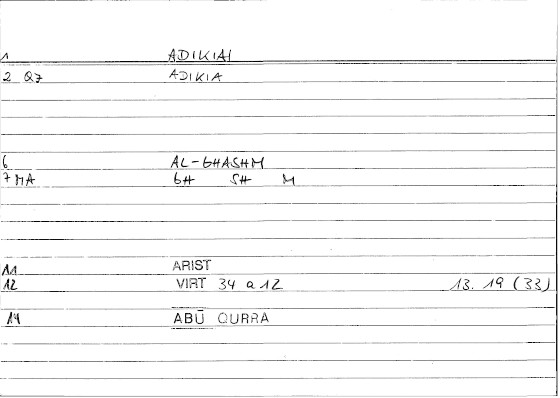 1 ADIKIAI
2 Q7 ADIKIA
6 AL-GHASHM
7 MA GH SH M
11 ARIST
12 VIRT 34 a 12 13. 19 (33)
14 ABŪ QURRA